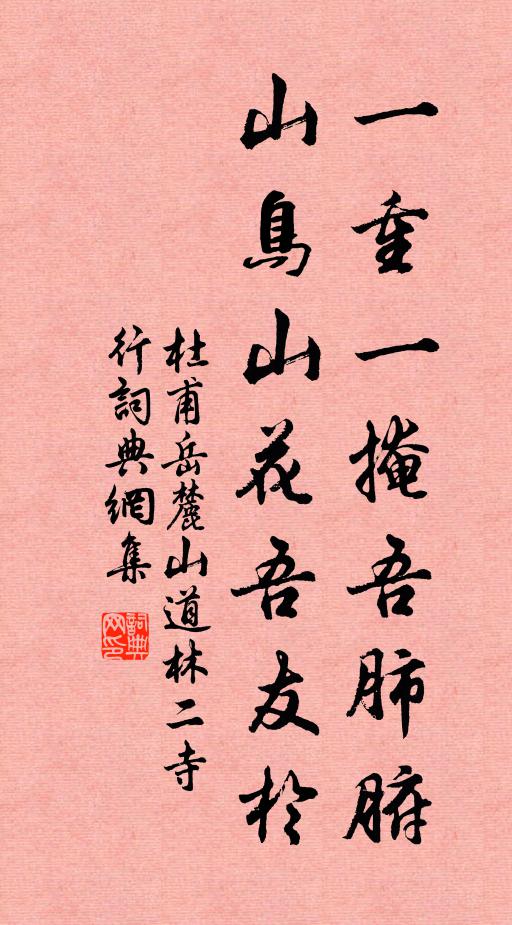 一重一掩吾肺腑
山鳥山花吾友於
杜甫岳麓山道林二寺
行詞典網集
詞典
网印